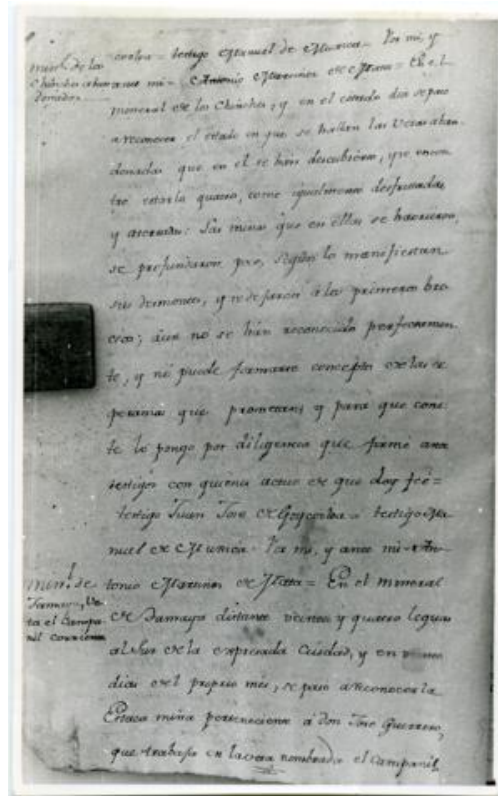 costea = testigo Manuel de Munica = Por mi, y
Minl. de los
Chinches abandonados
ante mi = Antonio Martines de Mata = En el
mineral de los Chinches, y en el citado dia se paso
a reconocer el estado en que se hallan las Vetas aban
donadas que en el se han descubierto, que encon
tro estarlo quatro, como igualmente despobladas
y aterradas: Las minas que en ellas se hacieron,
se profundaron poco, según lo manifiestan
sus desmontes, y se dejaron á los primeros bro
ceos; aun no se han reconocido perfectamen
te, y no puede formarse concepto de las es
peranzas que prometen; y para que cons
te lo pongo por diligencia que firmé ante
testigos con quienes actuo de que doy feé=
testigo Juan Jose de Goycochea = testigo Ma
nuel de Munica. Por mi, y ante mi = An
Minl. de
Veta el Campa
nil corriente
tonio Martines de Mata = En el mineral
de Damaya distante veinte y quatro leguas
al Sur de la expresada Ciudad, y en
dias del proprio mes, se paso a reconocer la
Estaca mina perteneciente á don Jose Guerrero,
que trabaja en la veta nombrada el Campanil